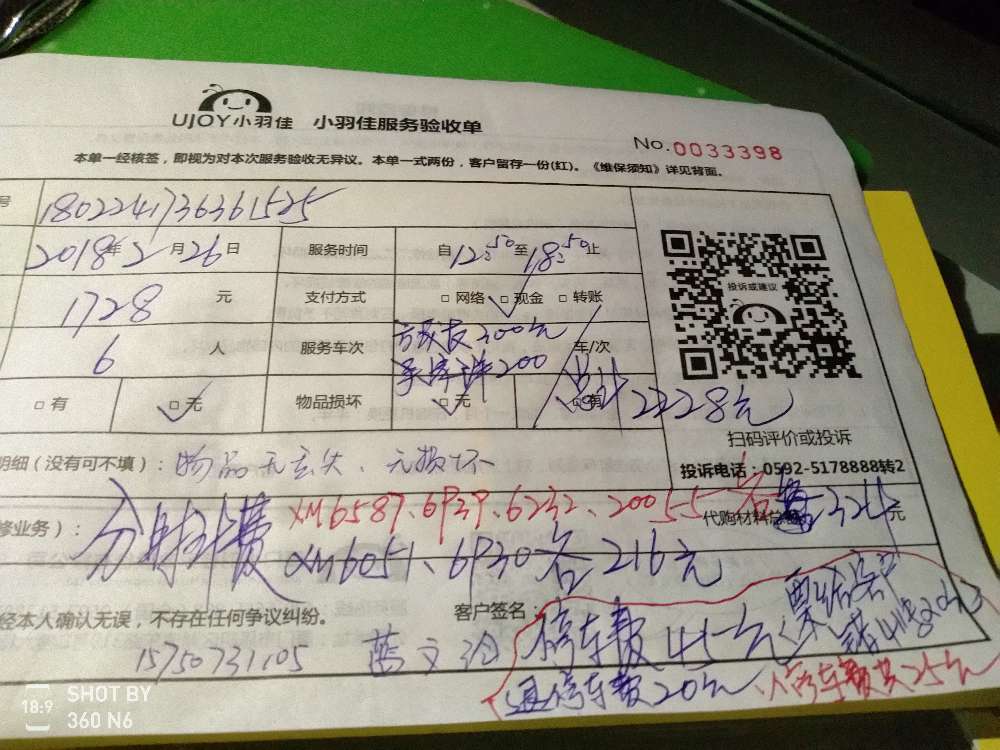 UJOY小羽佳 小羽佳服务验收单
No.0033398
本单一经核签，即视为对本次服务验收无异议。本单一式两份，客户留存一份(红)。《维保须知》详见背面。
号 1802241736361525
2018年2月26日 服务时间 自12:50至18:50止
投诉或建议
1728 元 支付方式 □网络 □现金 □转账
6 人 服务车次 200元 车/次
200
□有 □无 物品损坏 □无 □有 总计2228元
扫码评价或投诉
明细（没有可不填）：物品无丢失、无损坏
投诉电话：0592-5178888转2
修业务）： 分财计费 XM6587、6939、6232、20055各324元
代购材料总
XM6051、6930各216元
经本人确认无误，不存在任何争议纠纷。 客户签名：
停车费45元
15750731105
退停车费20元、 停车费共25元
SHOT BY
18:9
360 N6